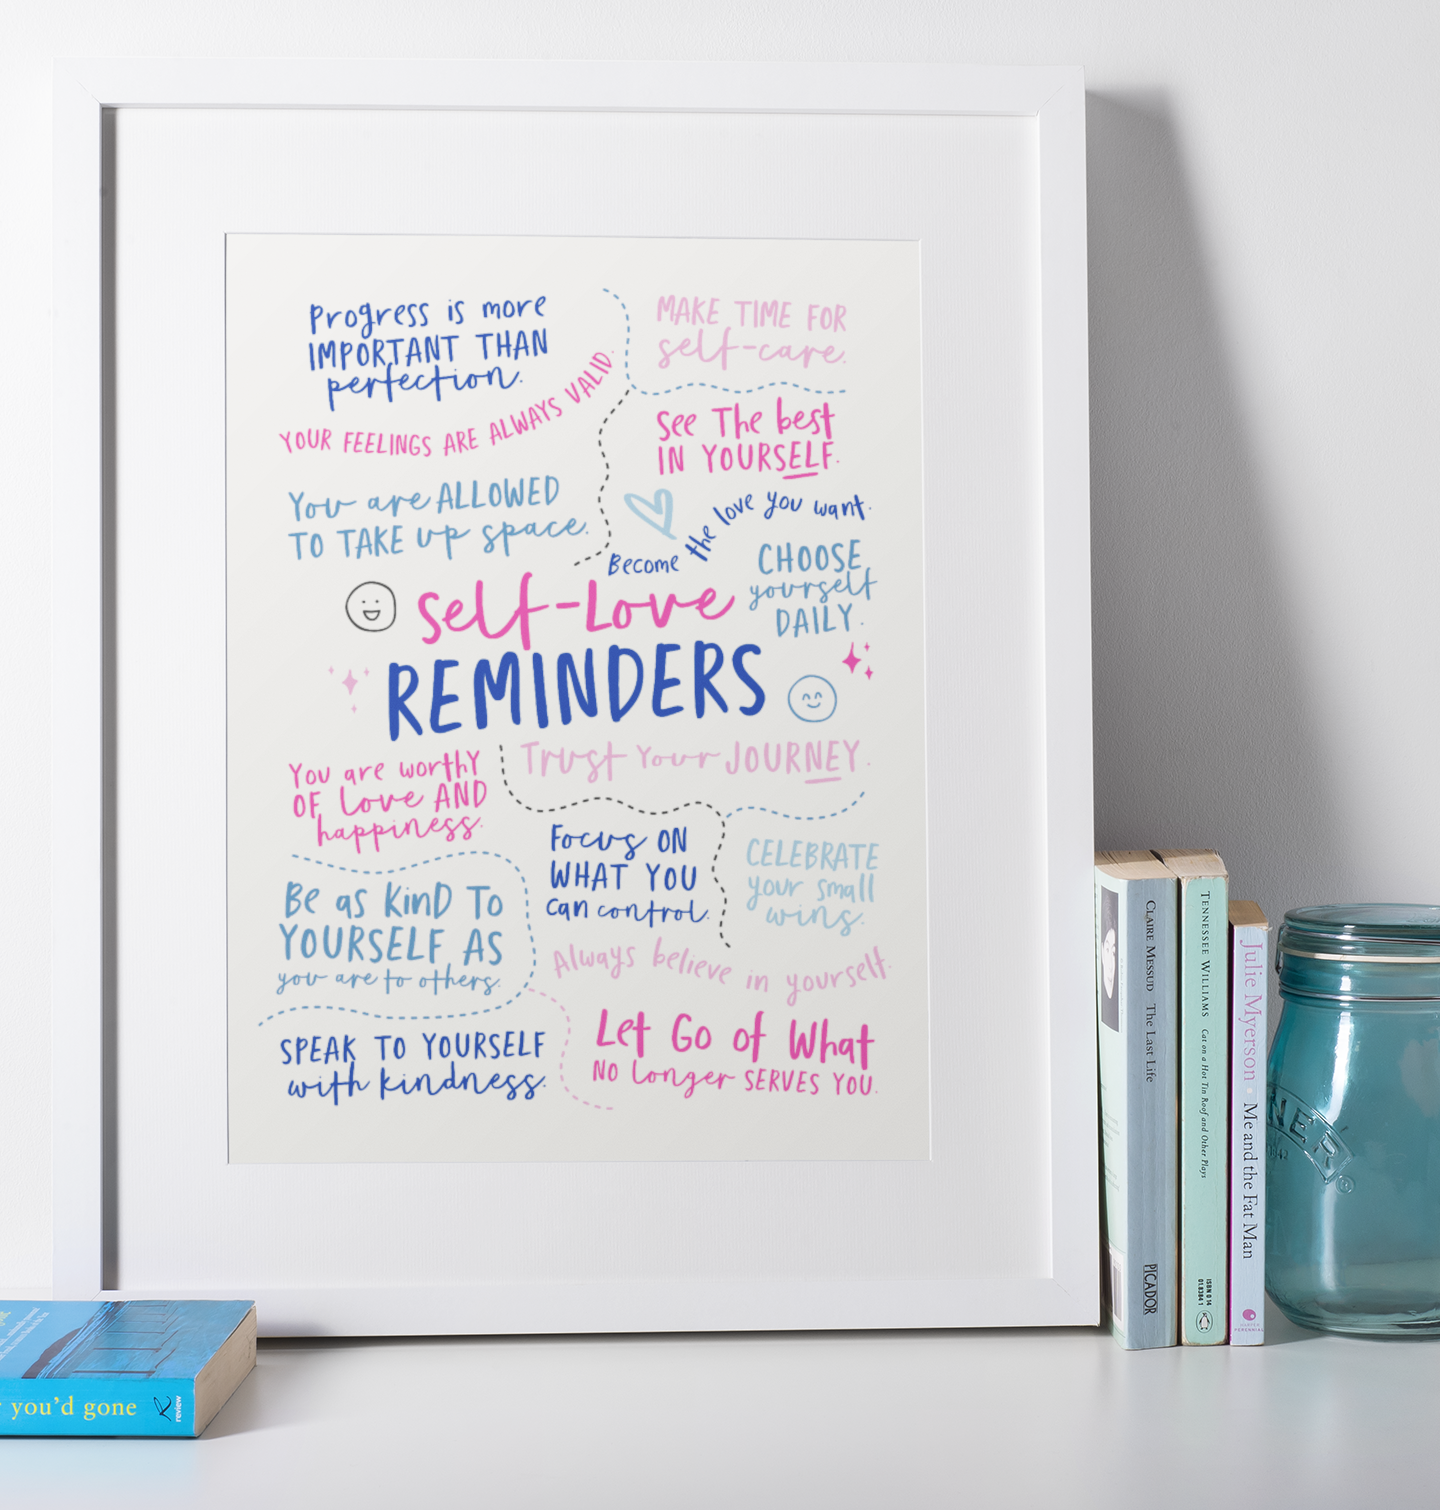 Progress is more
IMPORTANT THAN
perfection.
YOUR FEELINGS ARE ALWAYS VALID.
You are ALLOWED
TO TAKE up space.
MAKE TIME FOR
self-care.
See The best
IN YOURSELF.
Become the love you want.
CHOOSE
yourself
DAILY.
Self-Love
REMINDERS
Trust Your JOURNEY.
You are worthy
OF love AND
happiness.
Focus ON
WHAT YOU
can control.
CELEBRATE
your small
wins.
Be as Kind To
YOURSELF AS
you are to others.
Always believe in yourself.
SPEAK TO YOURSELF
with kindness.
Let Go of What
NO longer SERVES YOU.
CLAIRE MESSUD The Last Life
PICADOR
TENNESSEE WILLIAMS Cat on a Hot Tin Roof and Other Plays
ISBN 0 14
Julie Myerson • Me and the Fat Man
PERENNIAL
NER
you'd gone
review